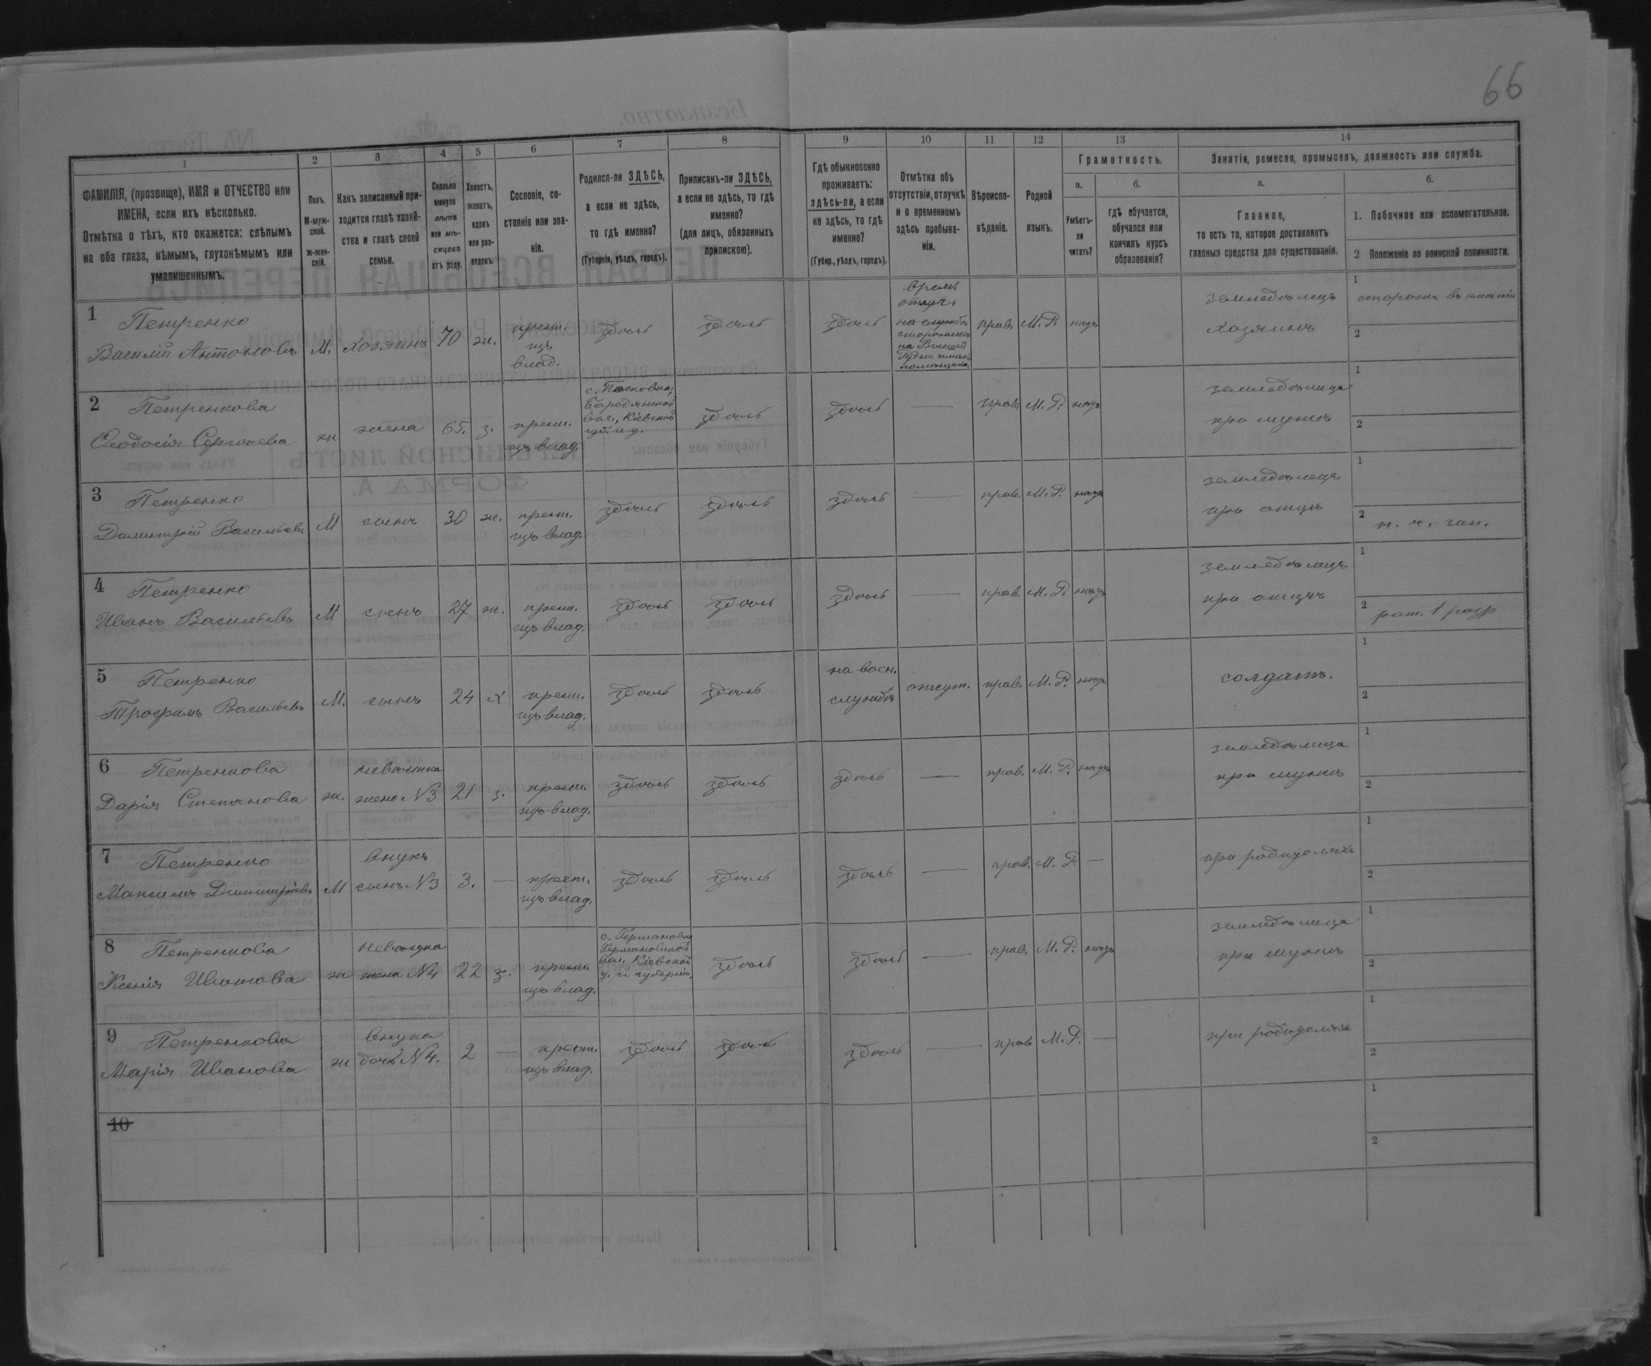 66
1 2 3 4 5 6 7 8 9 10 11 12 13 14
ФАМИЛІЯ, (прозвище), ИМЯ и ОТЧЕСТВО или
ИМЕНА, если ихъ нѣсколько.
Отмѣтка о тѣхъ, кто окажется: слѣпымъ
на оба глаза, нѣмымъ, глухонѣмымъ или
умалишеннымъ.
Полъ.
М-муж-
ской.
Ж-жен-
скій.
Какъ записанный при-
ходится главѣ хозяй-
ства и главѣ своей
семьи.
Сколько
минуло
лѣтъ
или мѣ-
сяцевъ
отъ роду.
Холостъ,
женатъ,
вдовъ
или раз-
веденъ.
Сословіе, со-
стояніе или зва-
ніе.
Родился-ли ЗДѢСЬ,
а если не здѣсь,
то гдѣ именно?
(Губернія, уѣздъ, городъ).
Приписанъ-ли ЗДѢСЬ,
а если не здѣсь, то гдѣ
именно?
(для лицъ, обязанныхъ
припискою).
Гдѣ обыкновенно
проживаетъ:
здѣсь-ли, а если
не здѣсь, то гдѣ
именно?
(Губер., уѣздъ, городъ).
Отмѣтка объ
отсутствіи, отлучкѣ
и о временномъ
здѣсь пребыва-
ніи.
Вѣроиспо-
вѣданіе.
Родной
языкъ.
Грамотность.
а.
Умѣетъ-
ли
читать?
б.
гдѣ обучается,
обучался или
кончилъ курсъ
образованія?
Занятіе, ремесло, промыселъ, должность или служба.
а.
Главное,
то есть то, которое доставляетъ
главныя средства для существованія.
б.
1. Побочное или вспомогательное.
2 Положеніе по воинской повинности.
1
Петренко
Василій Антоновъ
М. хозяинъ 70 ж.
крест.
изъ
влад.
здѣсь здѣсь здѣсь
врем.
отлуч.
на службѣ
сторожемъ
прав. М.Р. нѣтъ
земледѣлецъ
хозяинъ
1 сторожъ въ имѣніи
2
2
Петренкова
Ѳеодосія Сергѣева
ж жена 65. з.
крест.
изъ влад.
Бородянской
вол., Кіевской
губ. и у.
здѣсь здѣсь — прав. М.Р. нѣтъ
земледѣлица
при мужѣ
1
2
3
Петренко
Димитрій Васильевъ
М сынъ 30 ж.
крест.
изъ влад.
здѣсь здѣсь здѣсь — прав. М.Р. нѣтъ
земледѣлецъ
при отцѣ
1
2 н. ч. зап.
4
Петренко
Иванъ Васильевъ
М сынъ 27 ж.
крест.
изъ влад.
здѣсь здѣсь здѣсь — прав. М.Р. нѣтъ
земледѣлецъ
при отцѣ
1
2 рат. 1 разр
5
Петренко
Трофимъ Васильевъ
М. сынъ 24 х
крест.
изъ влад.
здѣсь здѣсь
на воен.
службѣ
отсут. прав. М.Р. нѣтъ
солдатъ.
1
2
6
Петренкова
Дарія Степанова
ж.
невѣстка
жена №3
21 з.
крест.
изъ влад.
здѣсь здѣсь здѣсь — прав. М.Р. нѣтъ
земледѣлица
при мужѣ
1
2
7
Петренко
Максимъ Димитріевъ
М
внукъ
сынъ №3
3. —
крест.
изъ влад.
здѣсь здѣсь здѣсь — прав. М.Р. —
при родителяхъ
1
2
8
Петренкова
Ксенія Иванова
ж
невѣстка
жена №4
22 з.
крест.
изъ влад.
с. Германовка
Германовской
вол., Кіевской
у. и губерніи
здѣсь здѣсь — прав. М.Р. нѣтъ
земледѣлица
при мужѣ
1
2
9
Петренкова
Марія Иванова
ж
внука
дочь №4.
2 —
крест.
изъ влад.
здѣсь здѣсь здѣсь — прав. М.Р. —
при родителяхъ
1
2
10
1
2